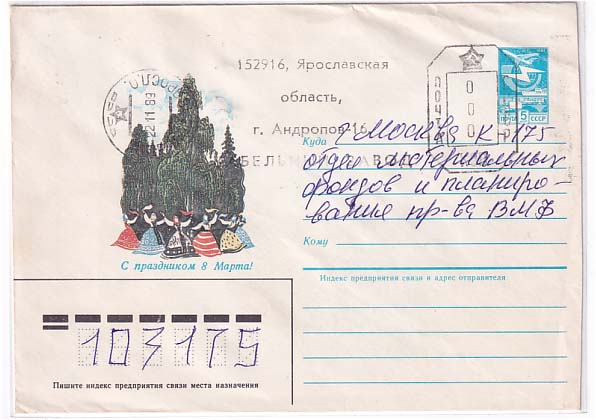 152916, Ярославская
область,
г. Андропов-16
БЕЛЬН ЗАВОД
ЯРОСЛ.
22 11 89
ПОЧТА
000
ПОЧТА 5 СССР
Куда г Москва К-175
отдел материальных
фондов и планиро-
вания пр-ва ВМФ
Кому
С праздником 8 Марта!
Индекс предприятия связи и адрес отправителя
103175
Пишите индекс предприятия связи места назначения